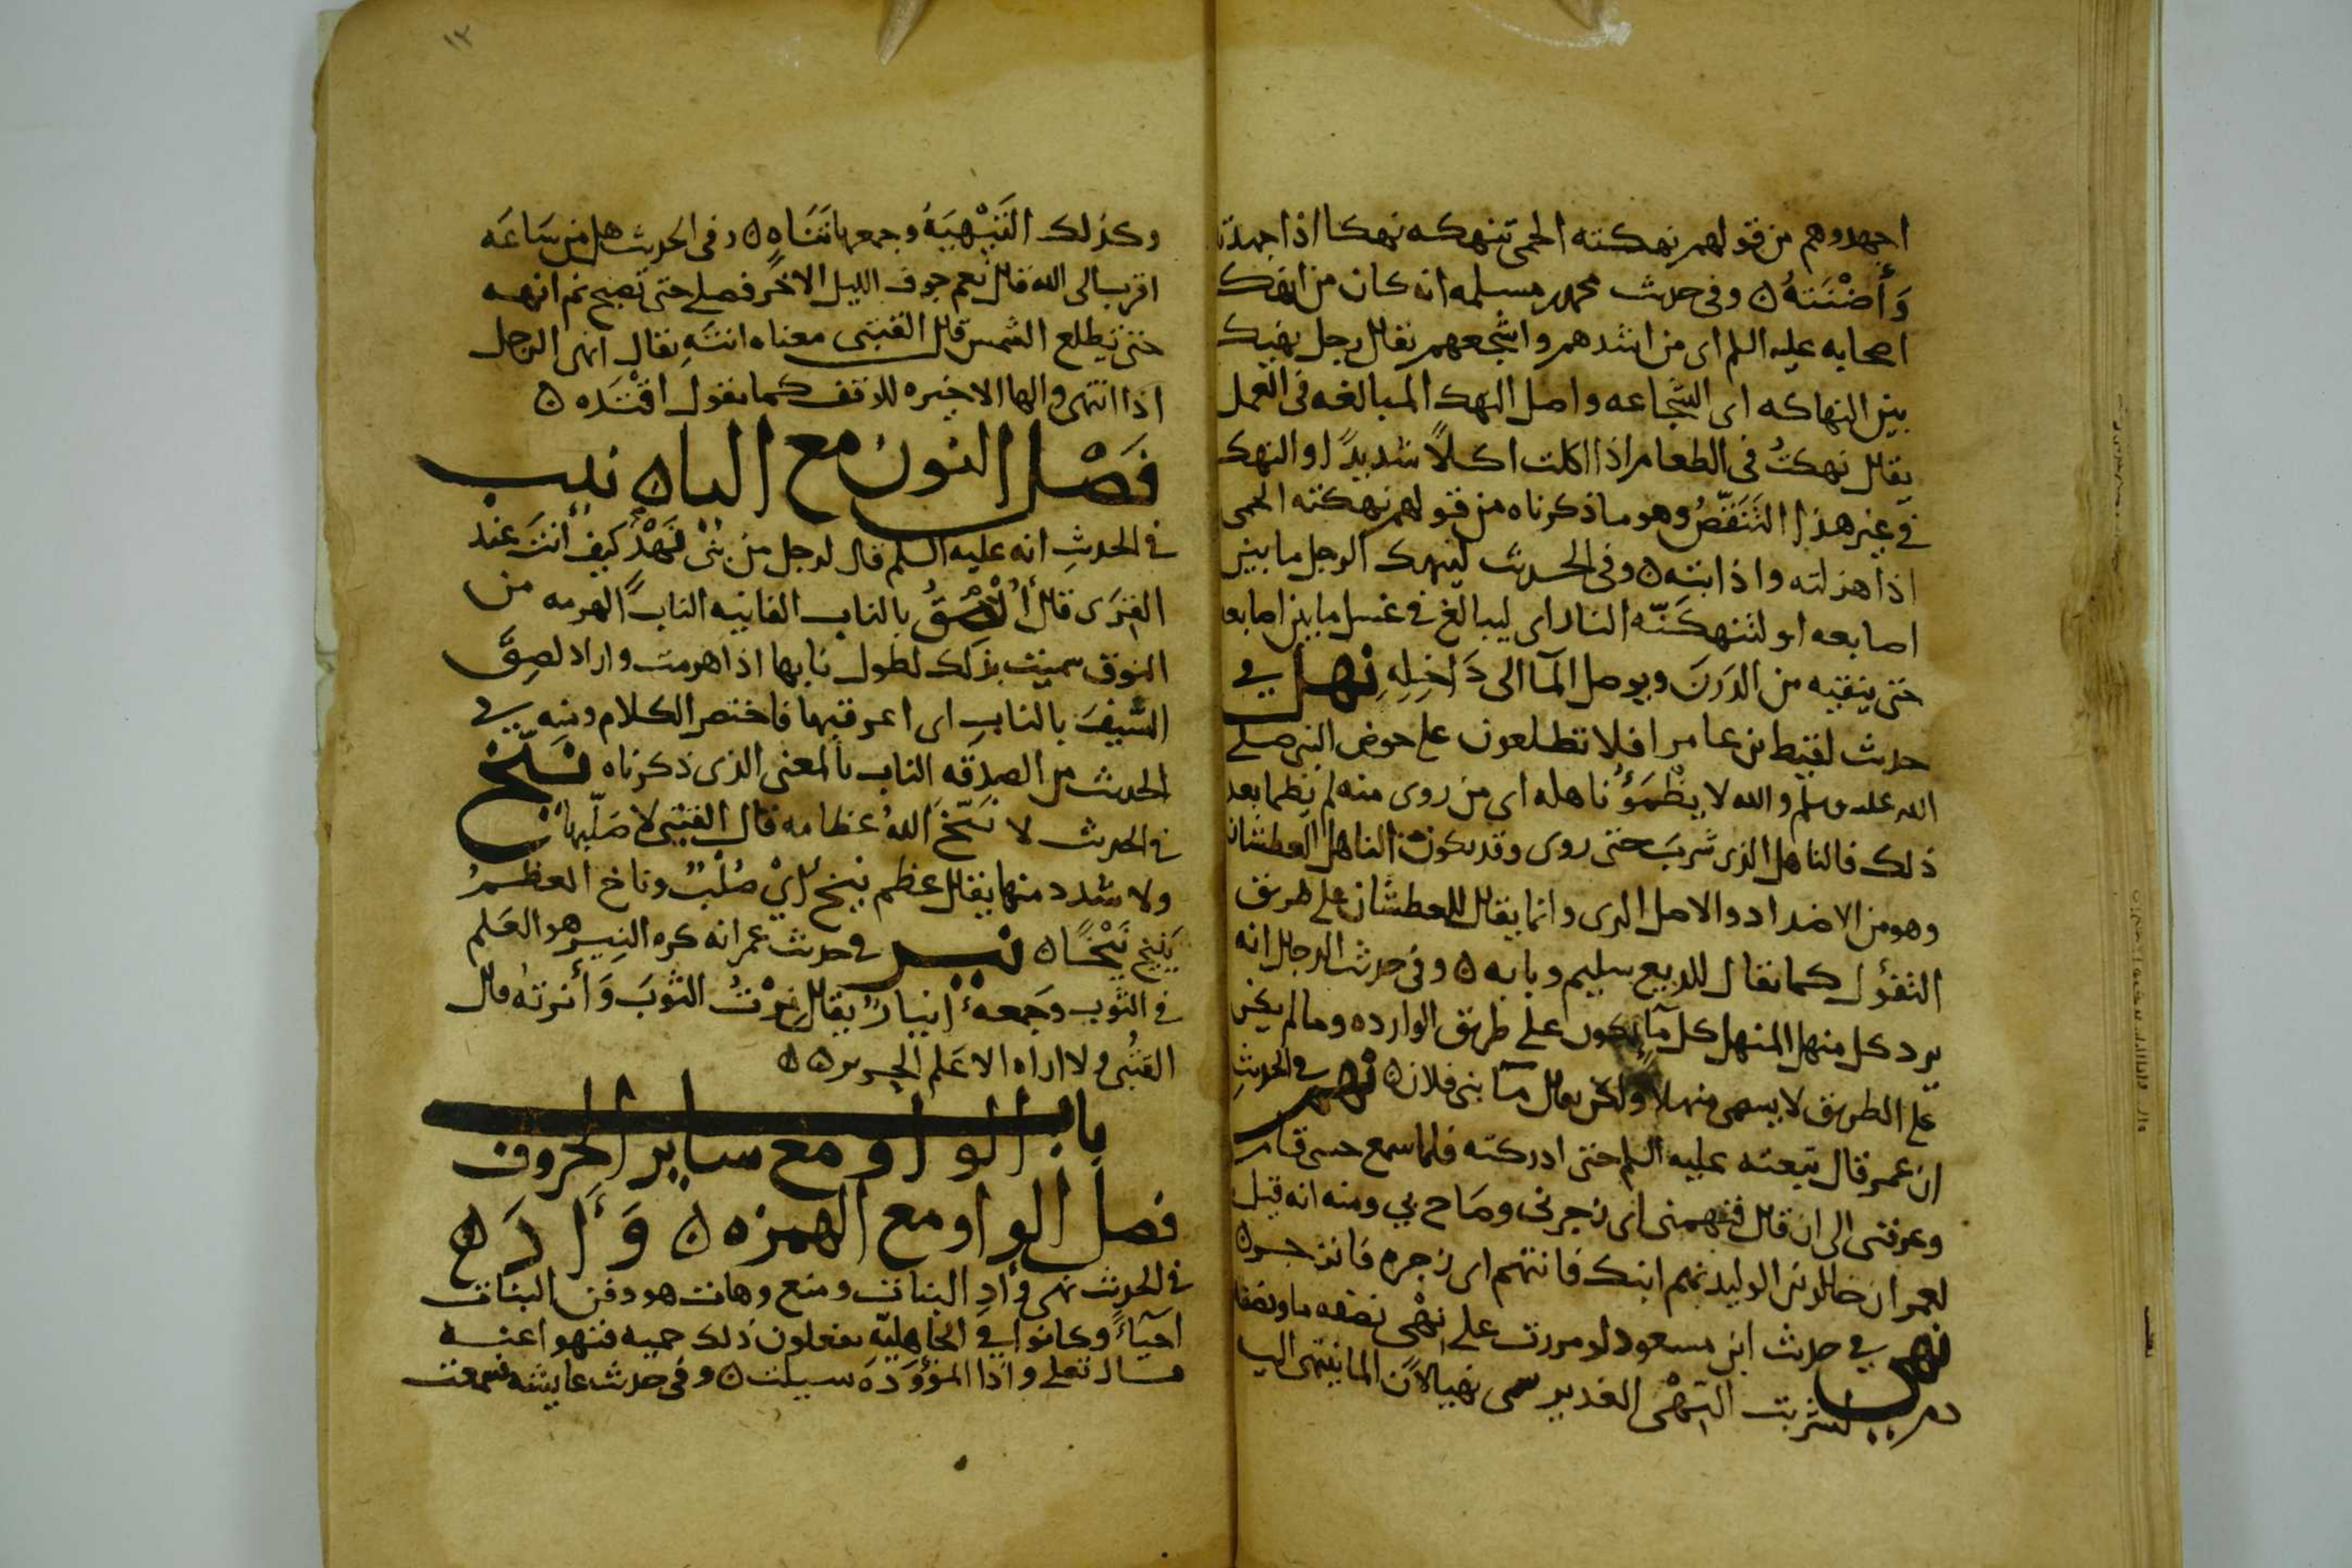 اجهدوهم من قولهم نهكته الحمى تنهكه نهكا اذا جهدته
وَأَضْنَتهُ ه وفى حديث محمد بن مسلمه انه كان من انهك
اصحابه عليه السلم اى من اشدهم واشجعهم يقال رجل نهيك
بين النهاكه اى الشجاعه واصل النهك المبالغه فى العمل
يقال نهكتُ فى الطعام اذا اكلت اكلاً شديدًا والنهك
فى غير هذا التَنَقّصُ وهو ما ذكرناه من قولهم نهكته الحمى
اذا هزلته واذابته ه وفى الحديث لينهك الرجل ما بين
اصابعه او لتنهكنّه النار اى ليبالغ فى غسل ما بين اصابعه
حتى ينقيه من الدَرَن ويوصل المآ الى دَاخِلِهِ نهل فى
حديث لقيط بن عامر افلا تطلعون على حوض النبى صلى
الله عليه وسلم والله لا يظْمَؤُ ناهله اى من روى منه لم يظما بعد
ذلك فالناهل الذى شربَ حتى روى وقد يكون الناهل العطشان
وهو من الاضداد والاصل الرى وانما يقال للعطشان على طريق
التفؤل كما يقال للديغ سليم وبابه ه وفى حديث الدجال انه
يرد كل منهل المنهل كل مآ يكون على طريق الوارده وما لم يكن
على الطريق لا يسمى منهلاً ولكن يقال مآ بنى فلان ه نهم فى الحديثِ
ان عمر قال تبعته عليه السلم حتى ادركته فلما سمع حسى قام
وعرفنى الى ان قال فنهمنى اى زجرنى وصَاح بى ومنه انه قيل
لعمر ان خالد بن الوليد نهم ابنك فانتهم اى زجره فانزجر ه
نهى فى حديث ابن مسعود لو مررت على نِهْى نصفه ما ونصفه
دم لشربت النِهْى الغدير سمى نهيا لانّ الما ينتهى اليه
١٢
وكذلك التَنْهِيَةُ وجمعها تَنَاهٍ ه وفى الحديث هل من سَاعَه
اقرب الى الله قال نعم جوف الليل الاخر فصلّ حتى تصبح ثم انهه
حتى تطلع الشمس قال القتبى معناه انتَهِ يقال انهى الرجل
اذا انتهى والها الاخيره للوقف كما يقول اقتَدِه ه
فَصْل النون مع اليا ه نيب
فى الحديثِ انه عليه السلم قال لرجل من بنى نَهْدٍ كيف أنتَ عند
القِرَى قال أُلْصِقُ بالناب الفانيه النابُ الهرمه من
النوق سميت بذلك لطول نابها اذا هرمت واراد لصِقَ
السَّيفَ بالنابِ اى اعرقبها فاختصر الكلام ومنه فى
الحديث من الصدقه الناب بالمعنى الذى ذكرناه نيّخ
فى الحديث لا نَيّخَ اللهُ عظامه قال القتبى لا صَلّبها
ولا شدد منها يقال عظم نيخٌ اىْ صُلْبٌ وناخ العظمُ
يَنِيخ نَيْخًا ه نير فى حديث عمر انه كره النِير هو العَلم
فى الثوب وجمعهُ انيارٌ يقال نِرْتُ الثوبَ وَأنرتُه قال
القتبى ولا اراه الا عَلم الحرير ه ه
باب الواو مع ساير الحروف
فصل الواو مع الهمزه ه وَأَدَ ه
فى الحديث نهى عن وأدِ البنات ومنع وهات هو دفن البنات
احيآءً وكانوا فى الجاهليّه يفعلون ذلك حميه فنهوا عنه
قال تعلى واذا الموْؤدَه سيلت ه وفى حديث عايشه فسمعت